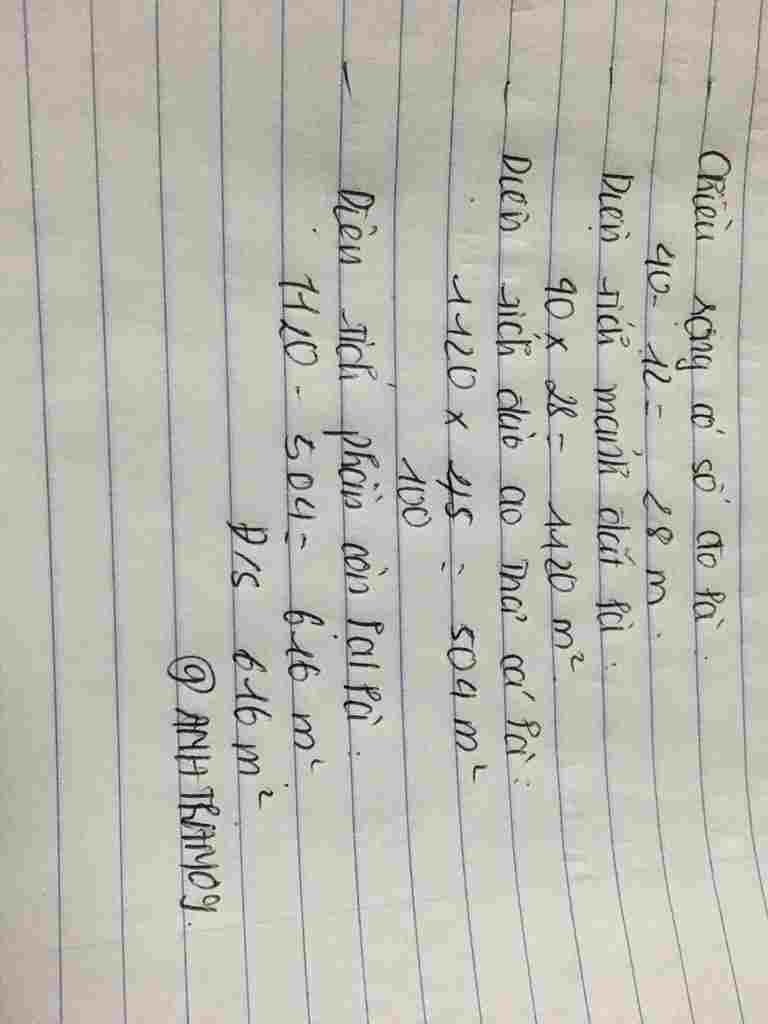 - Chiều rộng có số đo là:
40 - 12 = 28 m.
- Diện tích mảnh đất là:
40 x 28 = 1120 m²
- Diện tích đào ao thả cá là:
1120 x 45 = 504 m²
100
- Diện tích phần còn lại là:
1120 - 504 = 616 m²
Đ/S 616 m²
@ ANHTRAM09.